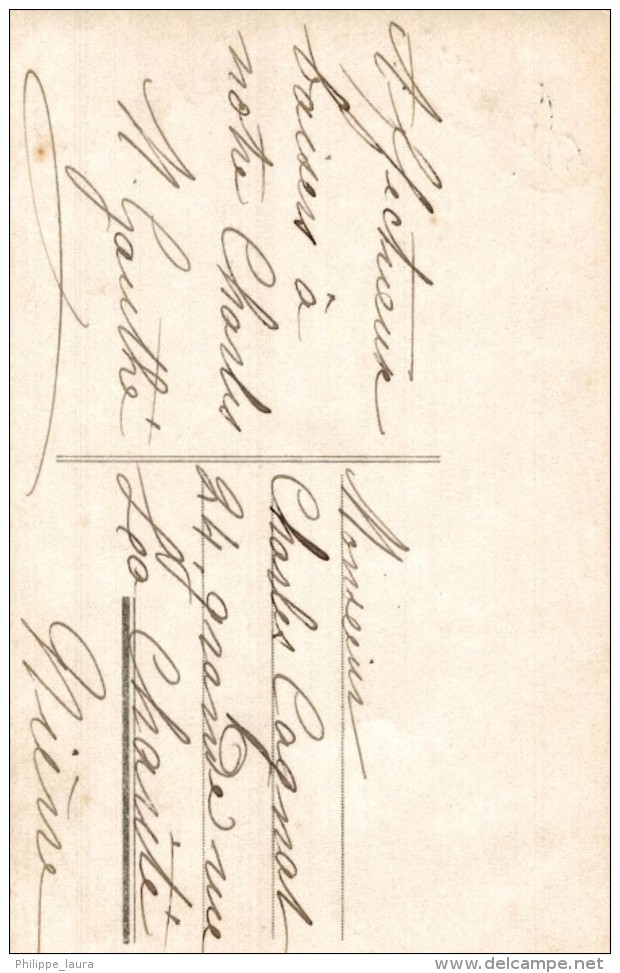 Affectueux
baisers à
notre Charles
N. Gauthé
Monsieur
Charles Cagnat
24, grande rue
La Charité
Nièvre
Philippe_laura
delcampe.net